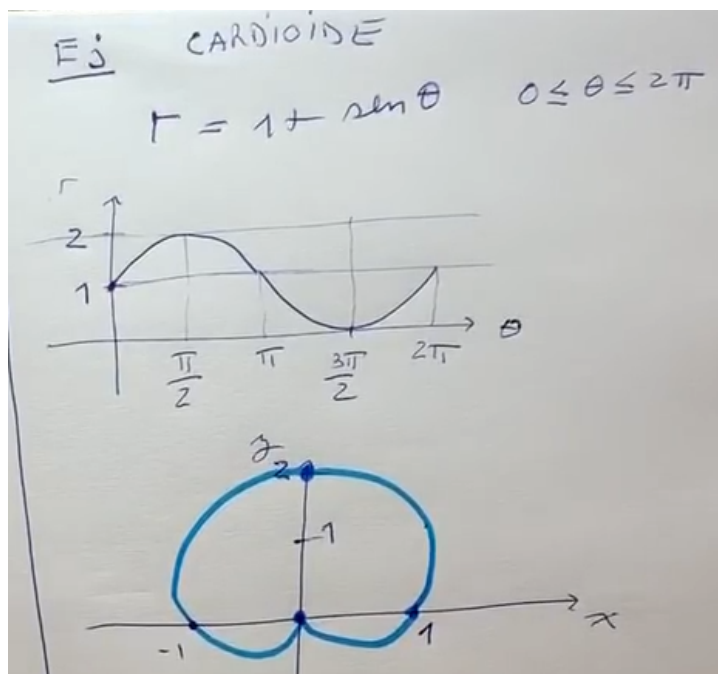 Ej CARDIOIDE
r = 1 + sen θ 0 ≤ θ ≤ 2π
r
2
1
θ
π/2 π 3π/2 2π
y
2
1
-1 1 x